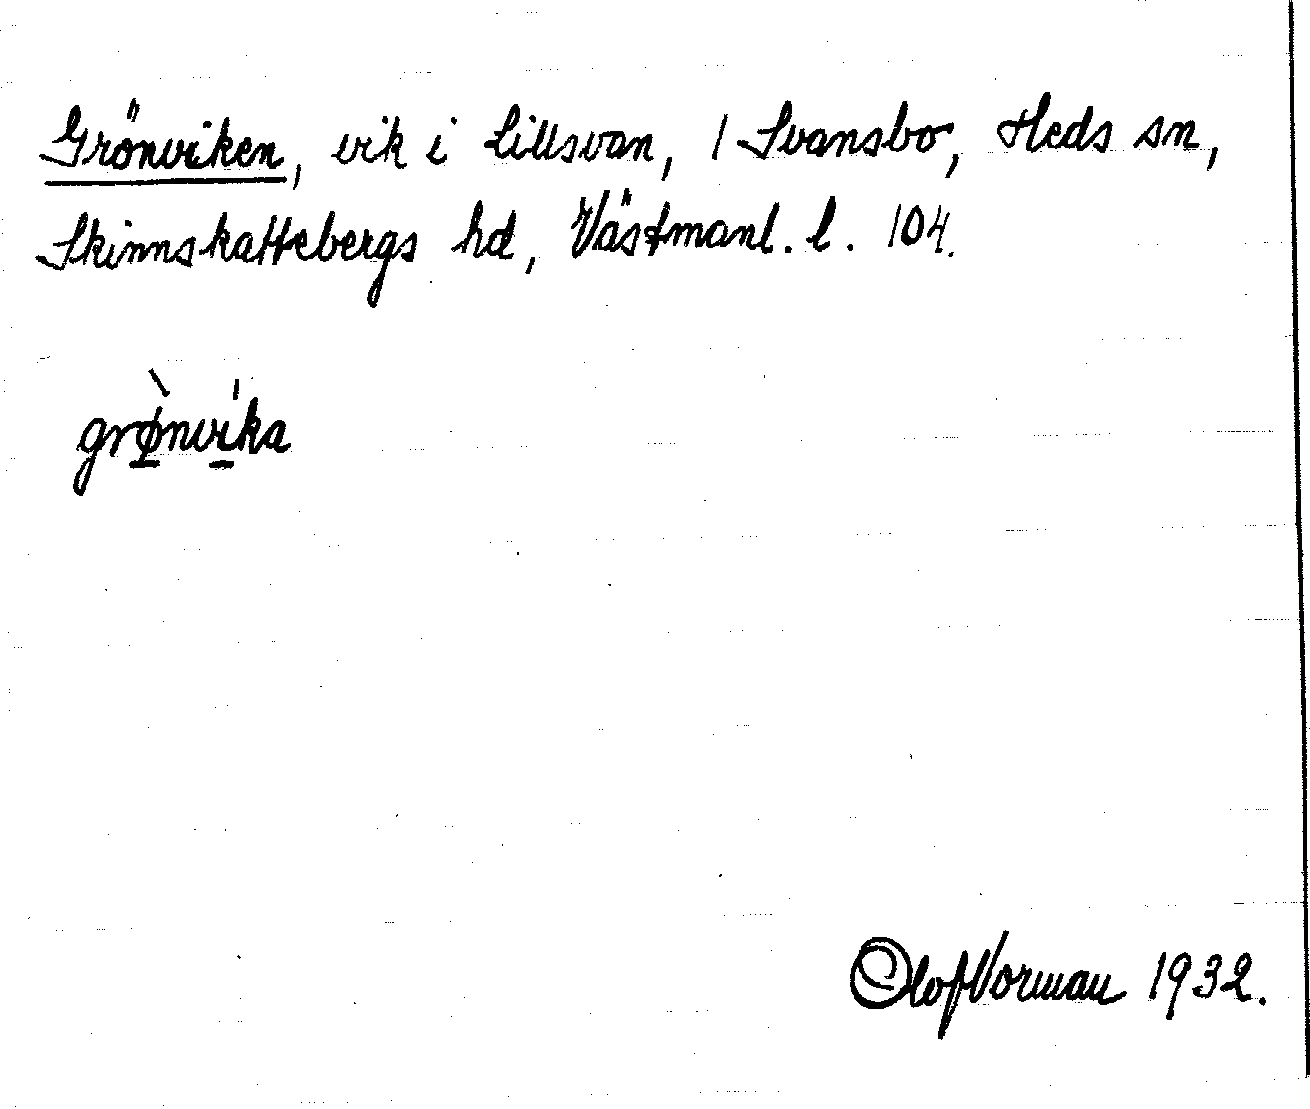 Grönviken, vik i Lillsvan, / Svansbo, Heds sn,
Skinnskattebergs hd, Västmanl. l. 104.
grø̀nvíka
Olof Vorman 1932.